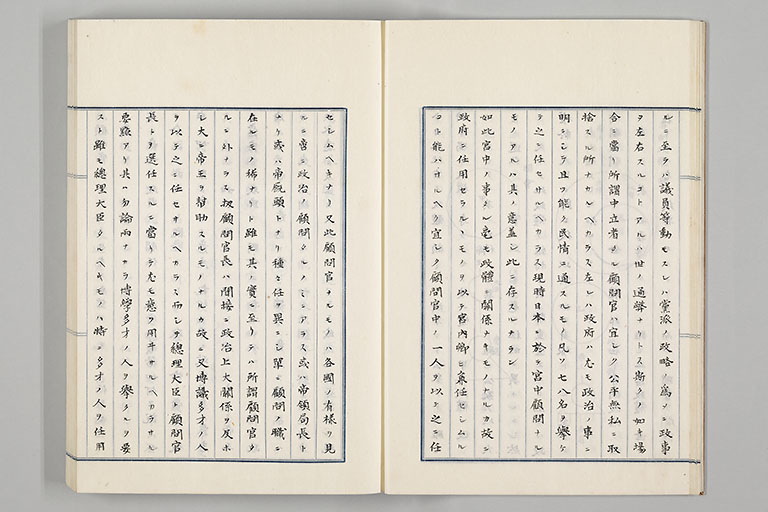 ルニ至ラバ議員等動モスレハ黨派ノ政略ノ爲メニ政事
ヲ左右スルコトアルハ世ノ通弊ナリトス斯クノ如キ場
合ニ當リ所謂中立者タル顧問官ハ宜シク公平無私ニ取
捨スル所ナカルヘカラス左レハ政府ハ尤モ政治ノ事ニ
明ニシテ且ツ能ク民情ニ通スルモノ凡ソ七八名ヲ擧ケ
之ニ任セサルヘカラス現時日本ニ於ル宮中顧問ナル
モノアルハ其ノ意蓋シ此ニ存スルナラン
如此宮中ノ事タル毫モ政體ニ關係ナキモノナルカ故ニ
政府ニ任用セラルヽモノヲ以テ宮内卿ヲ兼任セシムル
コト能ハサルヘク宜シク顧問官中ノ一人ヲ以テ之ニ任
セシムヘキナリ又此顧問官ナルモノハ各國ノ有樣ヲ見
ルニ啻ニ政治ノ顧問タルノミニアラス或ハ帝領局長ト
ナリ或ハ帝院頭トナリ種々任ヲ異ニシ單ニ顧問ノ職ニ
在ルモノ稀ナリト雖モ其ノ實ニ至リテハ所謂顧問官タ
ルニ外ナラス扨顧問官長ハ間接ニ政治上大關係ヲ及ホ
シ大ニ帝王ヲ幇助スルモノナルカ故ニ又博識多才ノ人
ヲ以テ之ニ任セサルヘカラス而シテ總理大臣ト顧問官
長トヲ選任スルニ當リテ尤モ意ヲ用ヰサルヘカラサル
要點アリ其ハ勿論兩ナカラ博學多才ノ人ヲ擧クルヲ要
スト雖モ總理大臣タルヘキモノハ特ニ多才ノ人ヲ任用